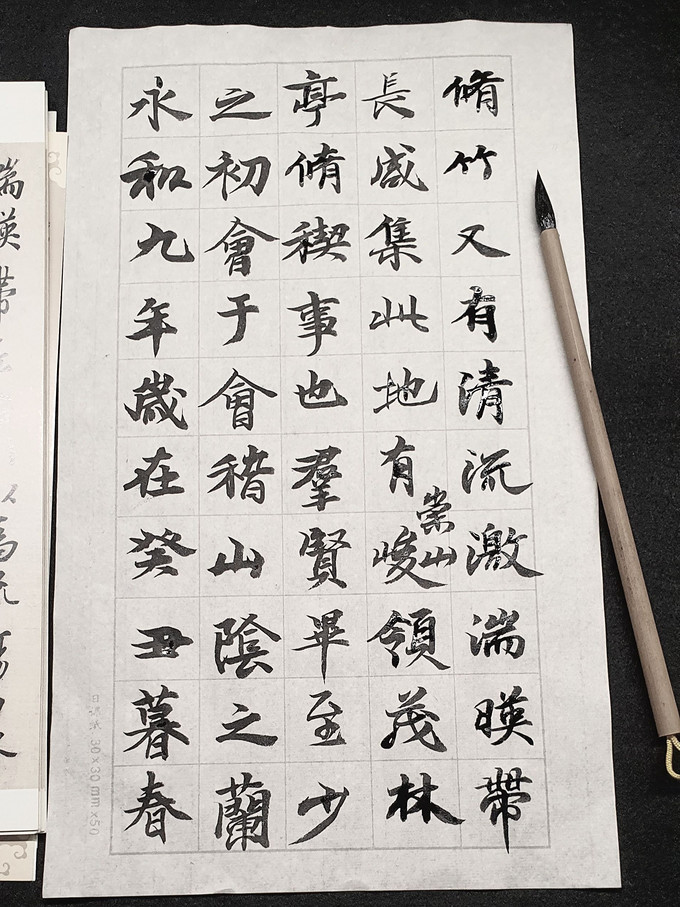 湍暎帶
為流
永和九年歲在癸丑暮春
之初會于會稽山陰之蘭
亭脩稧事也羣賢畢至少
長咸集此地有崇山峻領茂林
脩竹又有清流激湍暎帶
30×30mm×50